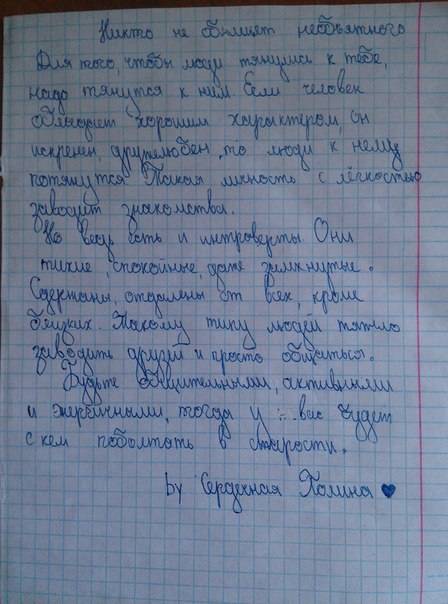 Никто не обнимет необъятного
Для того, чтобы люди тянулись к тебе,
надо тянутся к ним. Если человек
обладает хорошим характером, он
искренен, дружелюбен, то люди к нему
потянутся. Такая личность с лёгкостью
заводит знакомства.
Но ведь есть и интроверты. Они
тихие, спокойные, даже замкнутые.
Сдержаны, отдалены от всех, кроме
близких. Такому типу людей тяжло
заводить друзей и просто общаться.
Будьте общительными, активными
и энергичными, тогда у вас будет
с кем поболтать в старости.
by Сердечная Полина